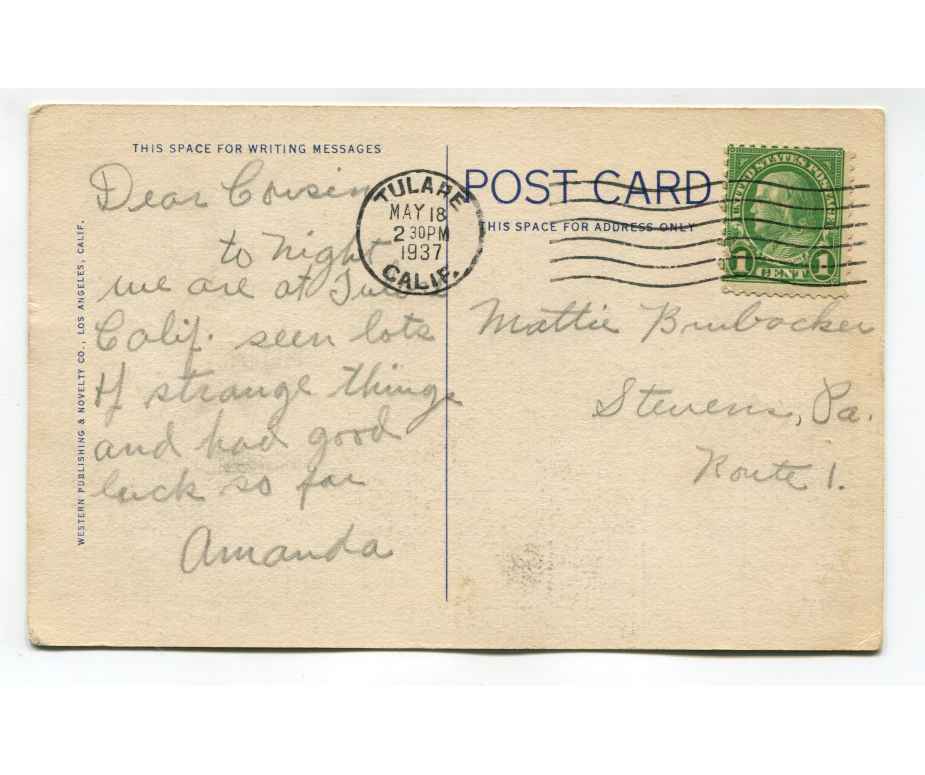 THIS SPACE FOR WRITING MESSAGES
Dear Cousin
to night
we are at Tulare
Calif. seen lots
of strange things
and had good
luck so far
Amanda
WESTERN PUBLISHING & NOVELTY CO., LOS ANGELES, CALIF.
TULARE
MAY 18
2 30PM
1937
CALIF.
POST CARD
THIS SPACE FOR ADDRESS ONLY
UNITED STATES POSTAGE
1 CENT 1
Mattie Brubacker
Stevens, Pa.
Route 1.